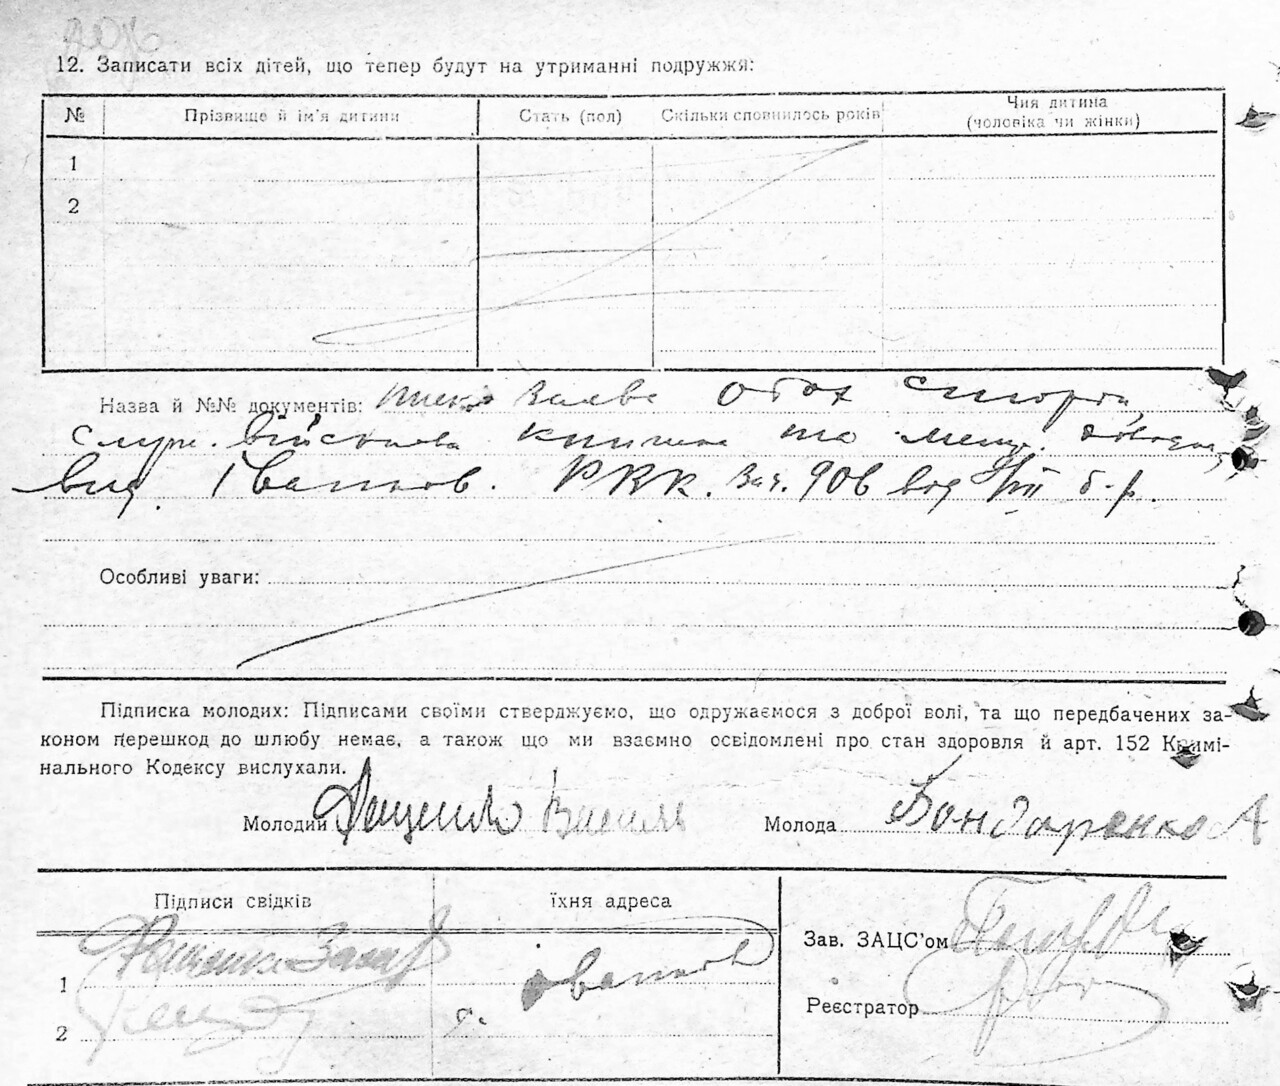 12. Записати всіх дітей, що тепер будут на утриманні подружжя:
№ Прізвище й ім'я дитини Стать (пол) Скільки сповнилось років Чия дитина (чоловіка чи жінки)
1
2
Назва й №№ документів: заява обох сторон,
служ. військова книжка та
вид. Іванков. РКК. за ч. 906 від б.р.
Особливі уваги:
Підписка молодих: Підписами своїми стверджуємо, що одружаємося з доброї волі, та що передбачених за-
коном перешкод до шлюбу немає, а також що ми взаємно освідомлені про стан здоровля й арт. 152 Кримі-
нального Кодексу вислухали.
Молодий Василь Молода Бондаренко А
Підписи свідків їхня адреса
Зав. ЗАЦС'ом
1
Реєстратор
2